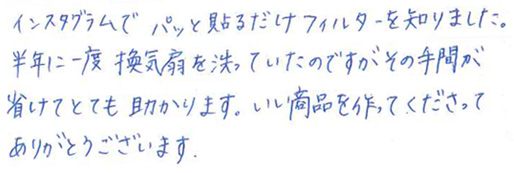 インスタグラムで パッと貼るだけフィルターを知りました。
半年に一度 換気扇を洗っていたのですがその手間が
省けてとても助かります。いい商品を作ってくださって
ありがとうございます.